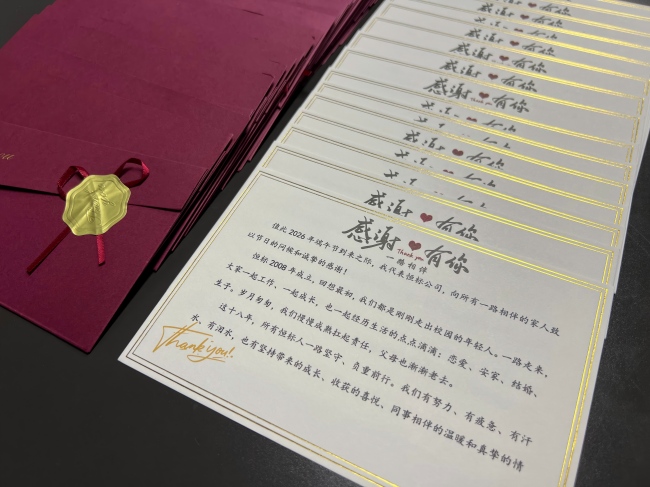 感谢 有你
感谢 有你
感谢 有你
感谢 有你
感谢 有你
感谢 有你
感谢 有你
Thank you
一路相伴
值此2026年端午节到来之际，我代表恒标公司，向所有一路相伴的家人致
以节日的问候和诚挚的感谢！
恒标2008年成立，回想最初，我们都是刚刚走出校园的年轻人。一路走来，
大家一起工作，一起成长，也一起经历生活的点点滴滴：恋爱、安家、结婚、
生子。岁月匆匆，我们慢慢成熟扛起责任，父母也渐渐老去。
这十八年，所有恒标人一路坚守、负重前行。我们有努力、有疲惫、有汗
水、有泪水，也有坚持带来的成长、收获的喜悦、同事相伴的温暖和真挚的情
Thank you!